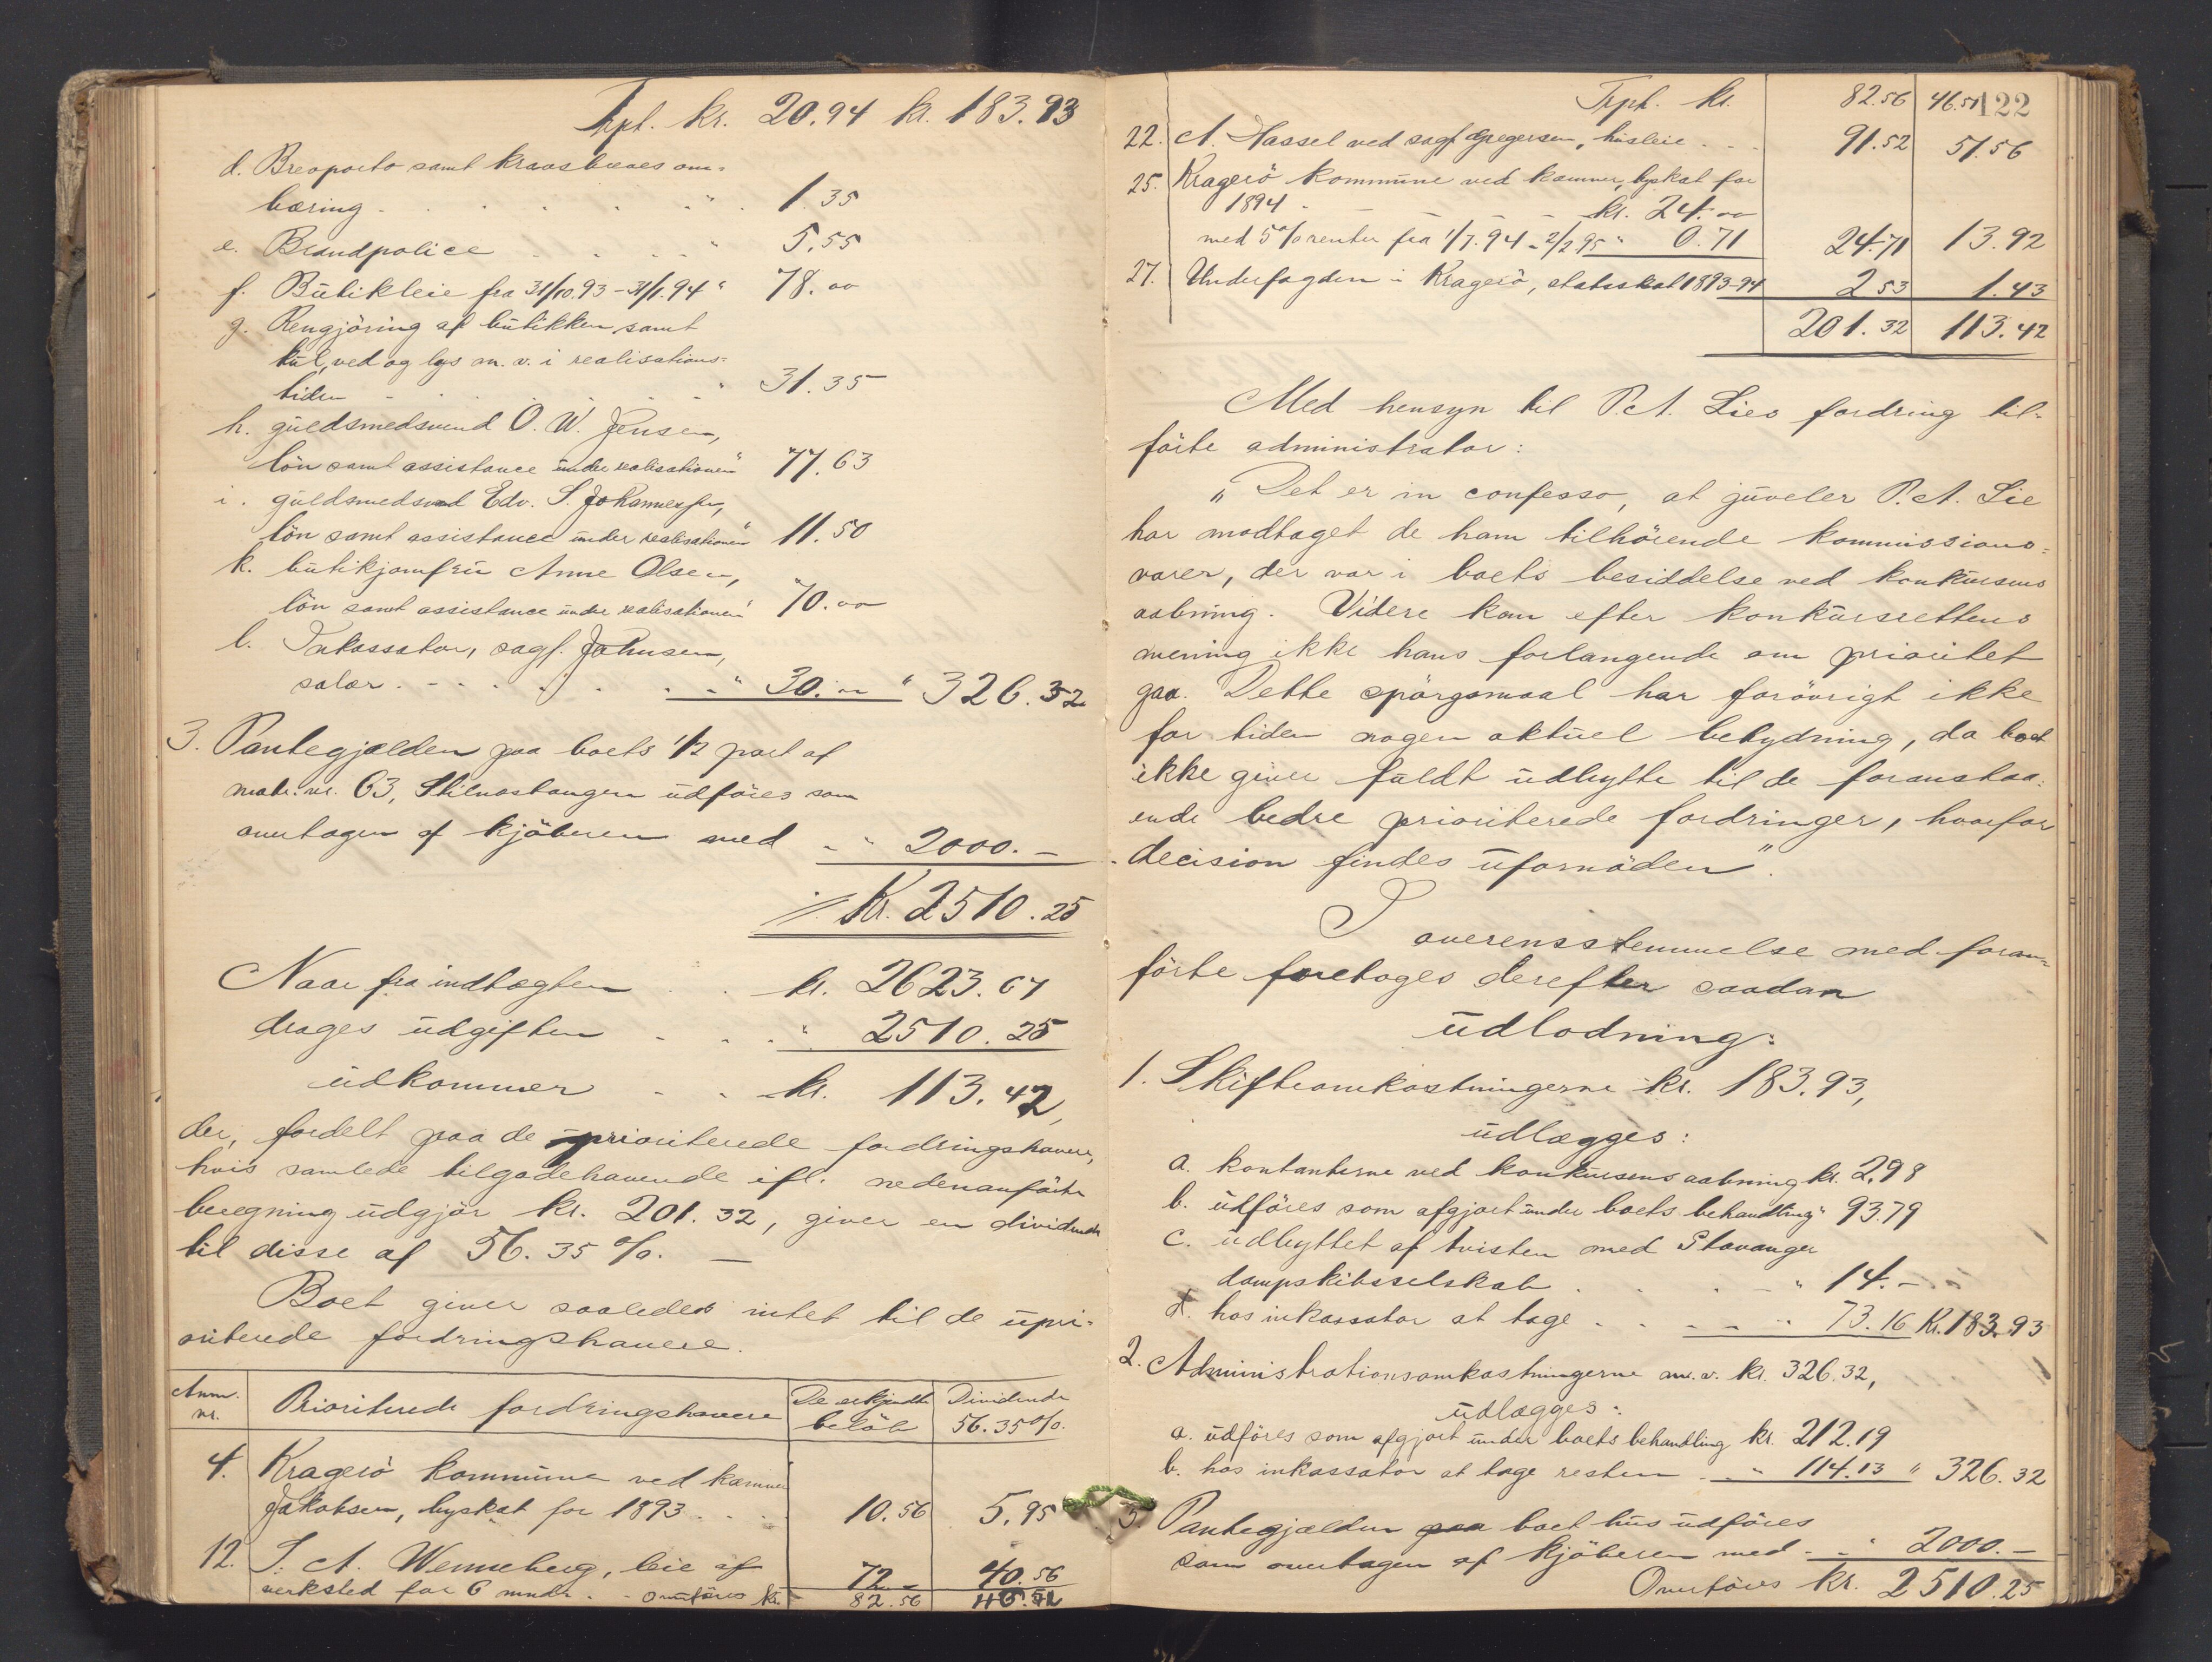 Trpt. kr. 20.94 kr. 183.93
d. Brevporto samt kravsbreves om-
bæring . . . . . " 1.35
e. Brandpolice . . . . " 5.55
f. Butikleie fra 31/10.93 - 31/1.94 " 78.00
g. Rengjöring af butikken samt
kul, ved og lys m. v. i realisations-
tiden . . . . . " 31.35
h. guldsmedsvend O. W. Jensen,
lön samt assistance under realisationen " 77.63
i. guldsmedsvend Edv. S. Johannessen,
lön samt assistance under realisationen " 11.50
k. butikjomfru Anne Olsen,
lön samt assistance under realisationen " 70.00
l. Inkassator, sagf. Johnsen,
salær . . . . . " 30.00 " 326.32
3. Pantegjælden paa boets 1/2 part af
matr. nr. 63, Stilnestangen udföres som
overtagen af kjöberen med . . " 2000.-
÷ Kr. 2510.25
Naar fra indtægten . . kr. 2623.67
drages udgiften . . . " 2510.25
udkommer . . kr. 113.42,
der, fordelt paa de prioriterede fordringshavere,
hvis samlede tilgodehavende ifl. nedenanförte
beregning udgjör kr. 201.32, giver en dividende
til disse af 56.35 %. —
Boet giver saaledes intet til de upri-
oriterede fordringshavere.
Anm. nr. Prioriterede fordringshavere De erkjendte belöb Dividende 56.35%.
4. Kragerö kommune ved kæmner
Jakobsen, byskat for 1893 . . . . 10.56 5.95
12. S. A. Wenneberg, leie af
verksted for 6 mndr. . 72 - 40.56
overföres kr. 82.56 46.51
122
Trpt. kr. 82.56 46.51
22. A. Hassel ved sagf. Gregersen, husleie . . . 91.52 51.56
25. Kragerö kommune ved kæmner, byskat for
1894 - - - - kr. 24.00
med 5 % renter fra 1/7.94 - 2/2 95 " 0.71 24.71 13.92
27. Underfogden i Kragerö, statsskat 1893-94 2.53 1.43
201.32 113.42
Med hensyn til P. A. Lies fordring til-
förte administrator:
"Det er in confesso, at juveler P. A. Lie
har modtaget de ham tilhörende kommissions-
varer, der var i boets besiddelse ved konkursens
aabning. Videre kan efter konkursrettens
mening ikke hans forlangende om prioritet
gaa. Dette spörgsmaal har forövrigt ikke
for tiden nogen aktuel betydning, da boet
ikke giver fuldt udbytte til de foranstaa-
ende bedre prioriterede fordringer, hvorfor
decision findes ufornöden".
I overensstemmelse med foran-
förte foretoges derefter saadan
udlodning:
1. Skifteomkostningerne kr. 183.93,
udlægges:
a. kontanterne ved konkursens aabning kr. 2.98
b. udföres som afgjort under boets behandling " 93.79
c. udbyttet af tvisten med Stavanger
dampskibsselskab . . . . " 14.-
d. hos inkassator at tage . . . . " 73.16 Kr. 183.93
2. Administrationsomkostningerne m. v. kr. 326.32,
udlægges:
a. udföres som afgjort under boets behandling kr. 212.19
b. hos inkassator at tage resten . . " 114.13 " 326.32
3. Pantegjælden paa boet hus udföres
som overtagen af kjöberen med . . " 2000.-
Overföres kr. 2510.25